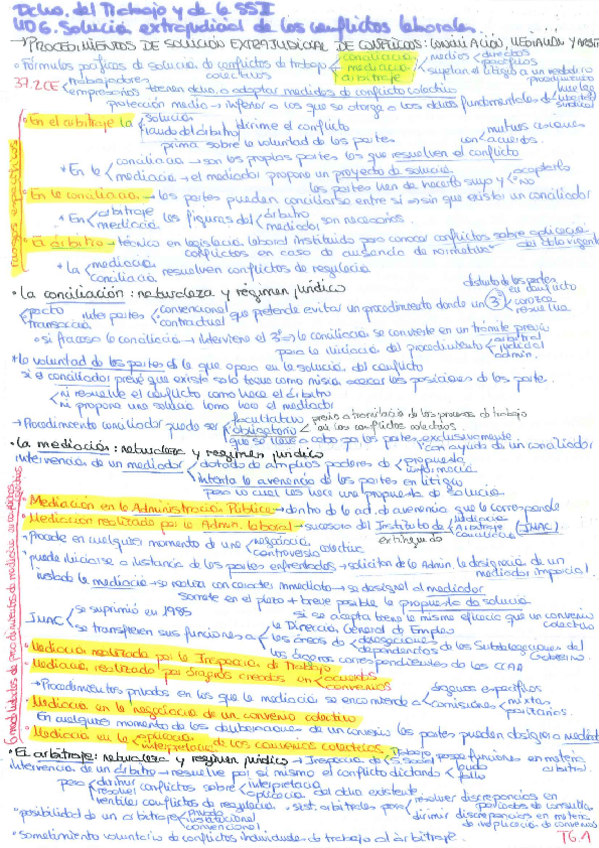 Dcho. del Trabajo y de la SS II
UD6. Solución extrajudicial de los conflictos laborales
→ PROCEDIMIENTOS DE SOLUCIÓN EXTRAJUDICIAL DE CONFLICTOS: CONCILIACIÓN, MEDIACIÓN Y
Fórmulas pacíficas de solución de conflictos de trabajo colectivos
conciliación
mediación
arbitraje
medios directos pacíficos
37.2 CE
trabajadores
empresarios
tienen dcho. a adoptar medidas de conflicto colectivo
protección media → inferior a los que se otorga a los dchos fundamentales de huelga libertad sindical
rasgos específicos
En el arbitraje la solución
laudo del árbitro
dirime el conflicto
prima sobre la voluntad de las partes
mutuas cesiones
con acuerdos.
En la conciliación → son las propias partes las que resuelven el conflicto
mediación → el mediador propone un proyecto de solución
las partes han de hacerlo suyo y aceptarlo o no
En la conciliación → las partes pueden conciliarse entre sí → sin que exista un conciliador
En arbitraje
mediación
las figuras del árbitro
mediador
son necesarios.
El árbitro → técnico en legislación laboral instituido para conocer conflictos sobre aplicación del dcho vigente
conflictos en caso de ausencia de normativa
La mediación
conciliación
resuelven conflictos de regulación
La conciliación: naturaleza y régimen jurídico
pacto
transacción
inter partes
convencional
contractual
que pretende evitar un procedimiento donde un 3º
distinto de las partes en conflicto
conozca
resuelva
si fracasa la conciliación → interviene el 3º → la conciliación se convierte en un trámite previo
para la iniciación del procedimiento
arbitral
judicial
admin.
la voluntad de las partes es la que opera en la solución del conflicto
si el conciliador prevé que existe solo tiene como misión acercar las posiciones de las partes
ni resuelve el conflicto como hace el árbitro
ni propone una solución como hace el mediador
Procedimiento conciliador puede ser facultativo
obligatorio
previo a tramitación de los procesos de trabajo
en los conflictos colectivos
que se lleve a cabo por las partes exclusivamente
con ayuda de un conciliador
La mediación: naturaleza y régimen jurídico
intervención de un mediador
dotado de amplios poderes de propuesta
información
intenta la avenencia de las partes en litigio
para lo cual les hace una propuesta de solución
6 modalidades de procedimientos de mediación
Mediación en la Administración Pública → dentro de la act. de avenencia que le corresponde
Mediación realizada por la Admin. laboral → sucesora del Instituto de Mediación
Arbitraje
Conciliación
(IMAC)
extinguido
Procede en cualquier momento de una negociación
controversia
colectiva
puede iniciarse a instancia de las partes enfrentadas → solicitan de la Admin. la designación de un mediador imparcial
instada la mediación → se realiza con carácter inmediato → se designa al mediador
somete en el plazo + breve posible la propuesta de solución
si se acepta tiene la misma eficacia que un convenio colectivo
IMAC
se suprimió en 1985
se transfieren sus funciones a
la Dirección General de Empleo
las áreas de delegaciones
dependencias
de las Subdelegaciones del Gobierno.
los órganos correspondientes de las CCAA
Mediación realizada por la Inspección de Trabajo
Mediación realizada por órganos creados en acuerdos
convenios
→ Procedimientos privados en los que la mediación se encomienda a
órganos específicos
comisiones mixtas
paritarias.
Mediación en la negociación de un convenio colectivo
En cualquier momento de las deliberaciones de un convenio las partes pueden designar a
Mediación en la aplicación
interpretación
de los convenios colectivos
El arbitraje: naturaleza y régimen jurídico
→ Inspección de Trabajo
S. Social
posee funciones en materia arbitral.
intervención de un árbitro → resuelve por sí mismo el conflicto dictando laudo
fallo
para dirimir
resolver
conflictos sobre interpretación
aplicación
del dcho existente.
ventilar conflictos de regulación
sist. arbitrales para
resolver discrepancias en periodos de consulta
dirimir discrepancias en materia de inaplicación de convenios
posibilidad de un arbitraje privado
institucional
convencional
sometimiento voluntario de conflictos individuales de trabajo al arbitraje.
T6.1